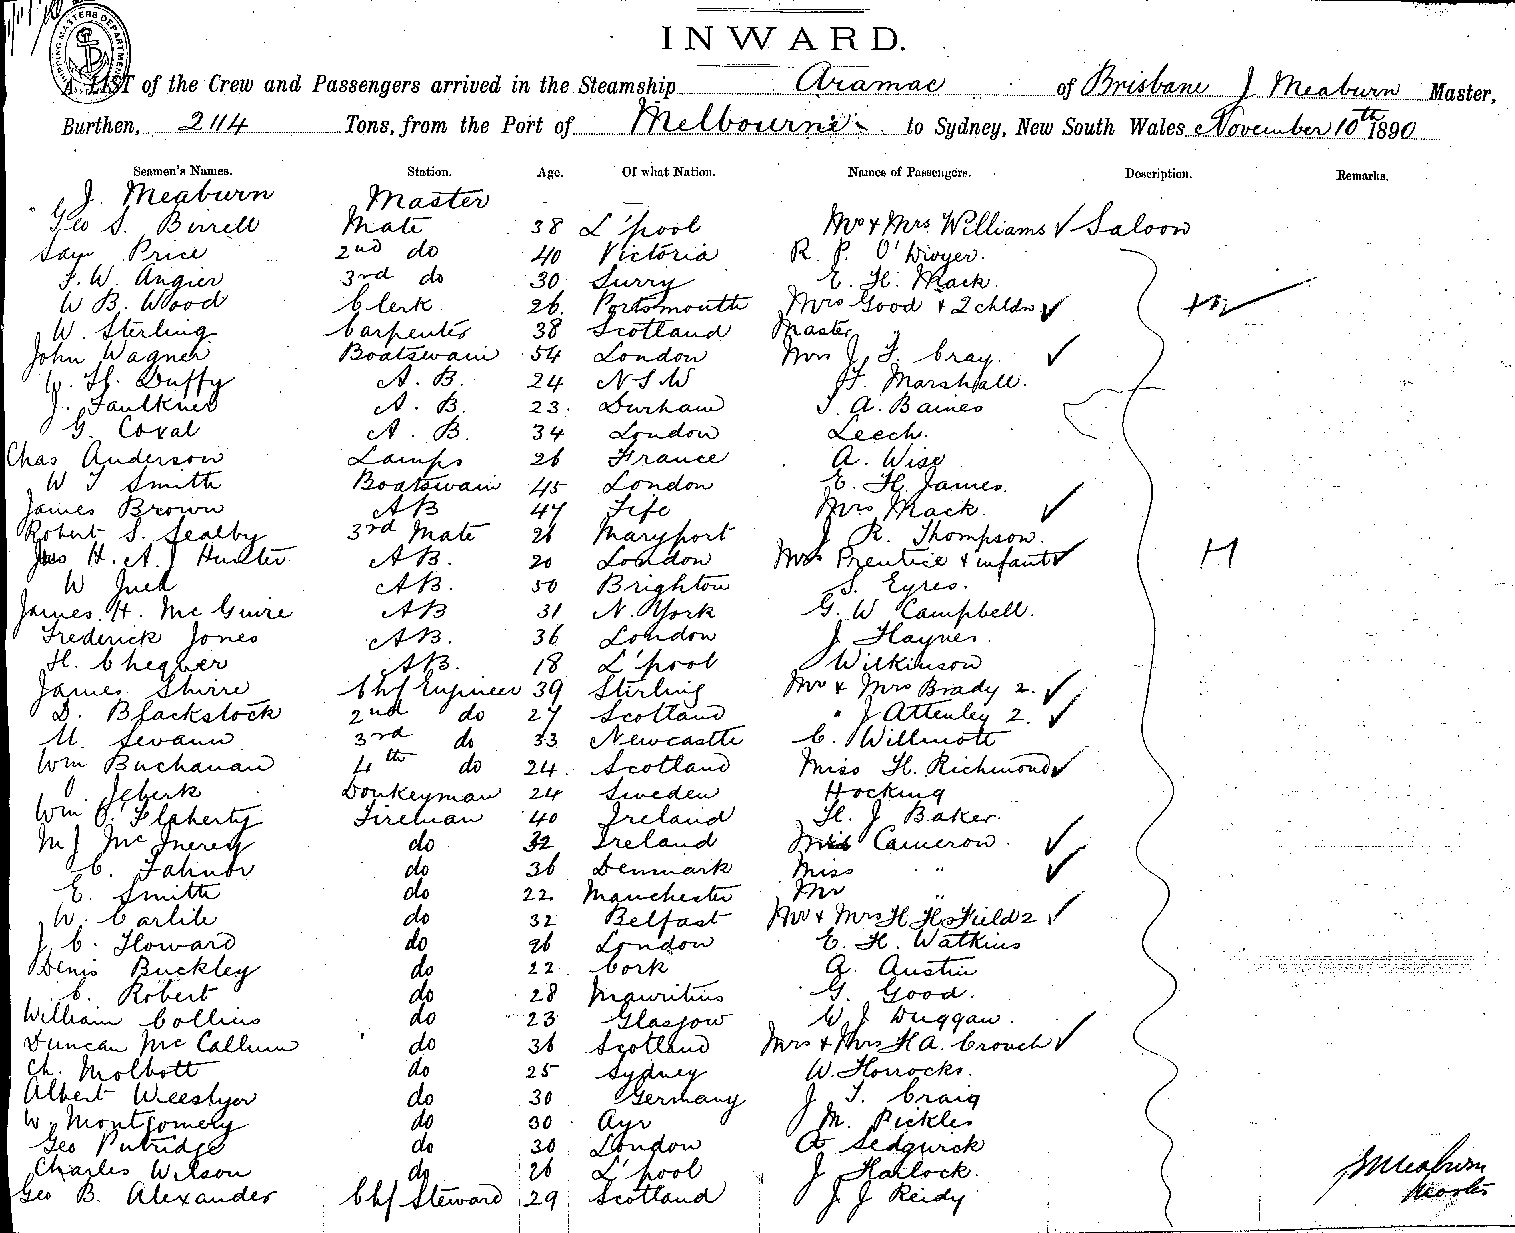 INWARD.
A LIST of the Crew and Passengers arrived in the Steamship Aramac of Brisbane J Meaburn Master,
Burthen, 2114 Tons, from the Port of Melbourne to Sydney, New South Wales November 10th 1890
Seamen's Names. Station. Age. Of what Nation. Names of Passengers. Description. Remarks.
J. Meaburn Master
Geo S. Birrell Mate 38 L'pool Mr & Mrs Williams ✓ Saloon
Sam Price 2nd do 40 Victoria R. P. O'Dwyer.
F. W. Angier 3rd do 30 Surry E. H. Mack.
W B. Wood Clerk 26. Portsmouth Mrs Good & 2 chldn ✓
W. Sterling Carpenter 38 Scotland Master "
John Wagner Boatswain 54 London Mrs J. F. Cray. ✓
W. H. Duffy A. B. 24 N S W F. Marshall.
J. Faulkner A. B. 23. Durham J. A. Baines
G. Coxal A. B. 34 London Leech.
Chas Anderson Lamps 26 France A. Wise
W T Smith Boatswain 45 London E. H. James.
James Brown AB 47 Fife Mrs Mack. ✓
Robert S. Sealby 3rd Mate 26 Maryport J. R. Thompson.
Jas H. A. J Hunter AB. 20 London Mrs Prentice & infant ✓ H
W Juch AB. 50 Brighton S. Eyres.
James. H. McGuire AB 31 N. York G. W Campbell.
Frederick Jones AB. 36 London J Haynes.
H. Chequer AB. 18 L'pool Wilkinson
James Shirre Chf Engineer 39 Stirling Mr & Mrs Brady 2. ✓
D. Blackstock 2nd do 27 Scotland " J Attenley 2. ✓
M. Sevann 3rd do 33 Newcastle C. Willmott
Wm Buchanan 4th do 24. Scotland Miss H. Richmond ✓
Donkeyman 24 Sweden Hocking
Wm O'Flaherty Fireman 40 Ireland H. J Baker.
M J McInerey do 32 Ireland Mrs Cameron. ✓
C. do 36 Denmark Miss " ✓
E. Smith do 22. Manchester Mr "
W. Carlile do 32 Belfast Mr & Mrs H. H. Field 2 ✓
J C. Howard do 26 London E. H. Watkins
Denis Buckley do 22 Cork A. Austin
C. Robert do 28 Mauritius G. Good.
William Collins do 23 Glasgow W J Duggan.
Duncan McCallum do 36 Scotland Mrs & Mrs H A. Crouch ✓
Ch. Molbott do 25 Sydney W. Horrocks.
Albert Weestyor do 30 Germany J. T. Craig
W. Montgomery do 30 Ayr M. Pickles
Geo Putridge do 30 London A Sedgwick
Charles Wilson do 26 L'pool J Harlock.
Geo B. Alexander Chf Steward 29 Scotland J J Reidy
J Meaburn
Master